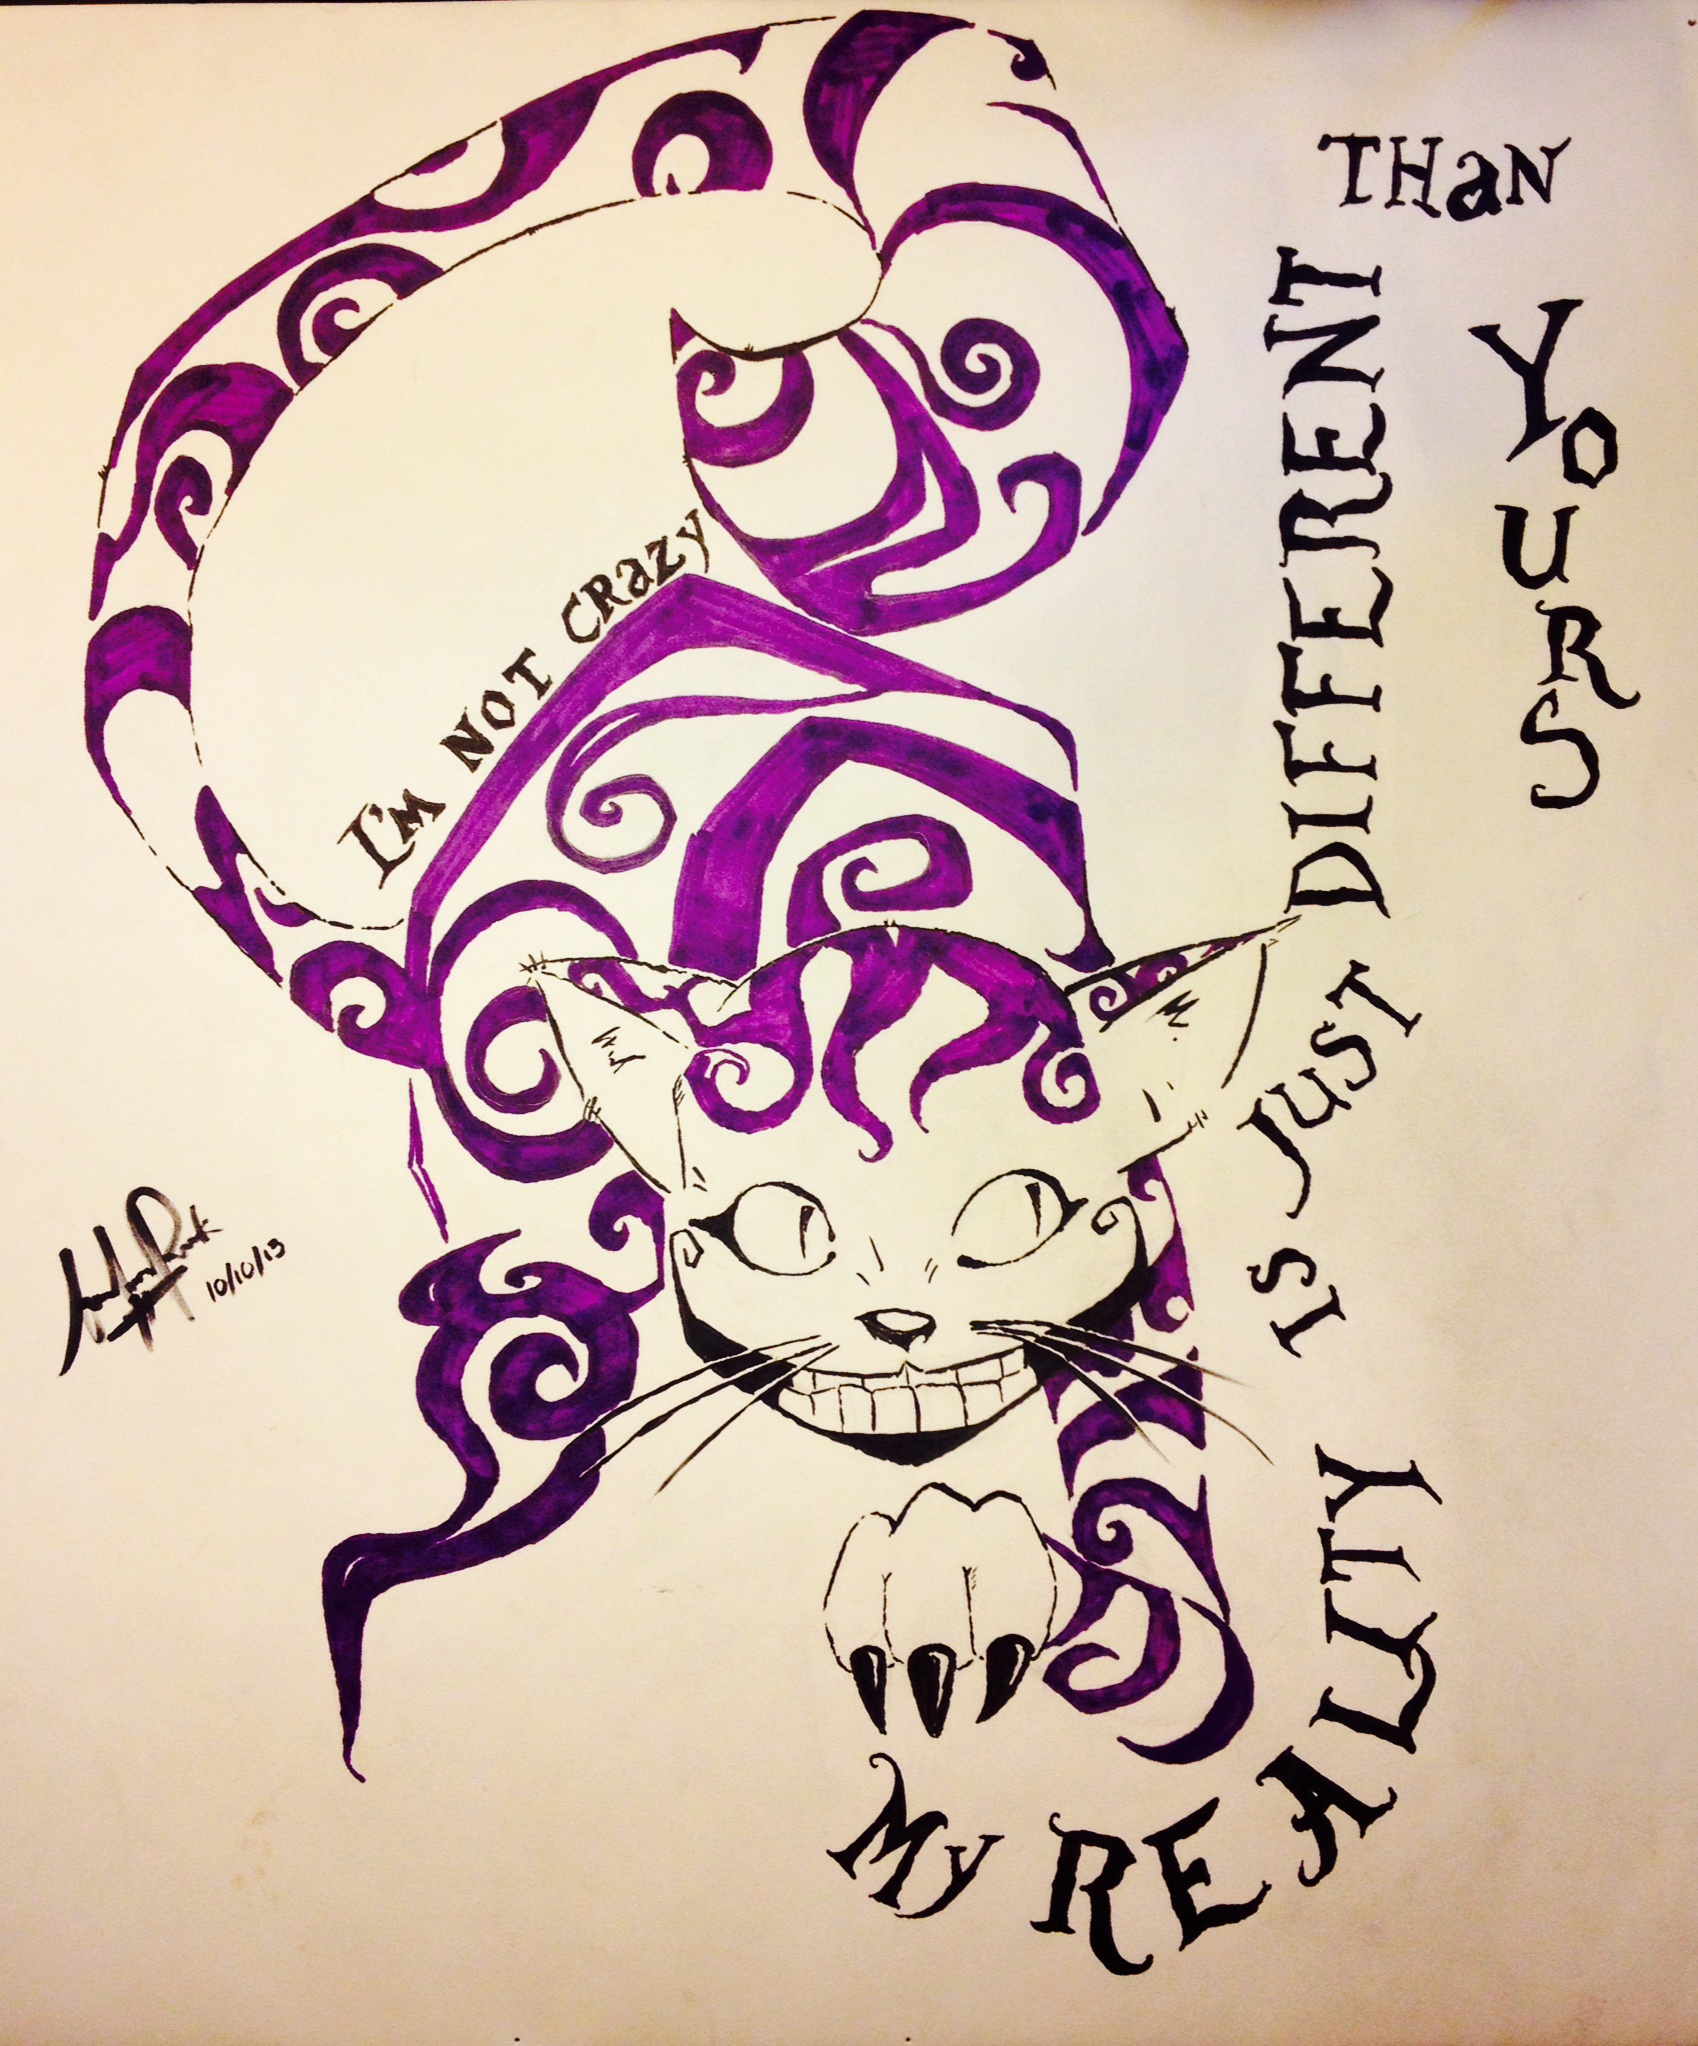 I'm NOT CRazy
My REALITY
IS JUST
DIFFERENT
THaN
YOURS
10/10/13